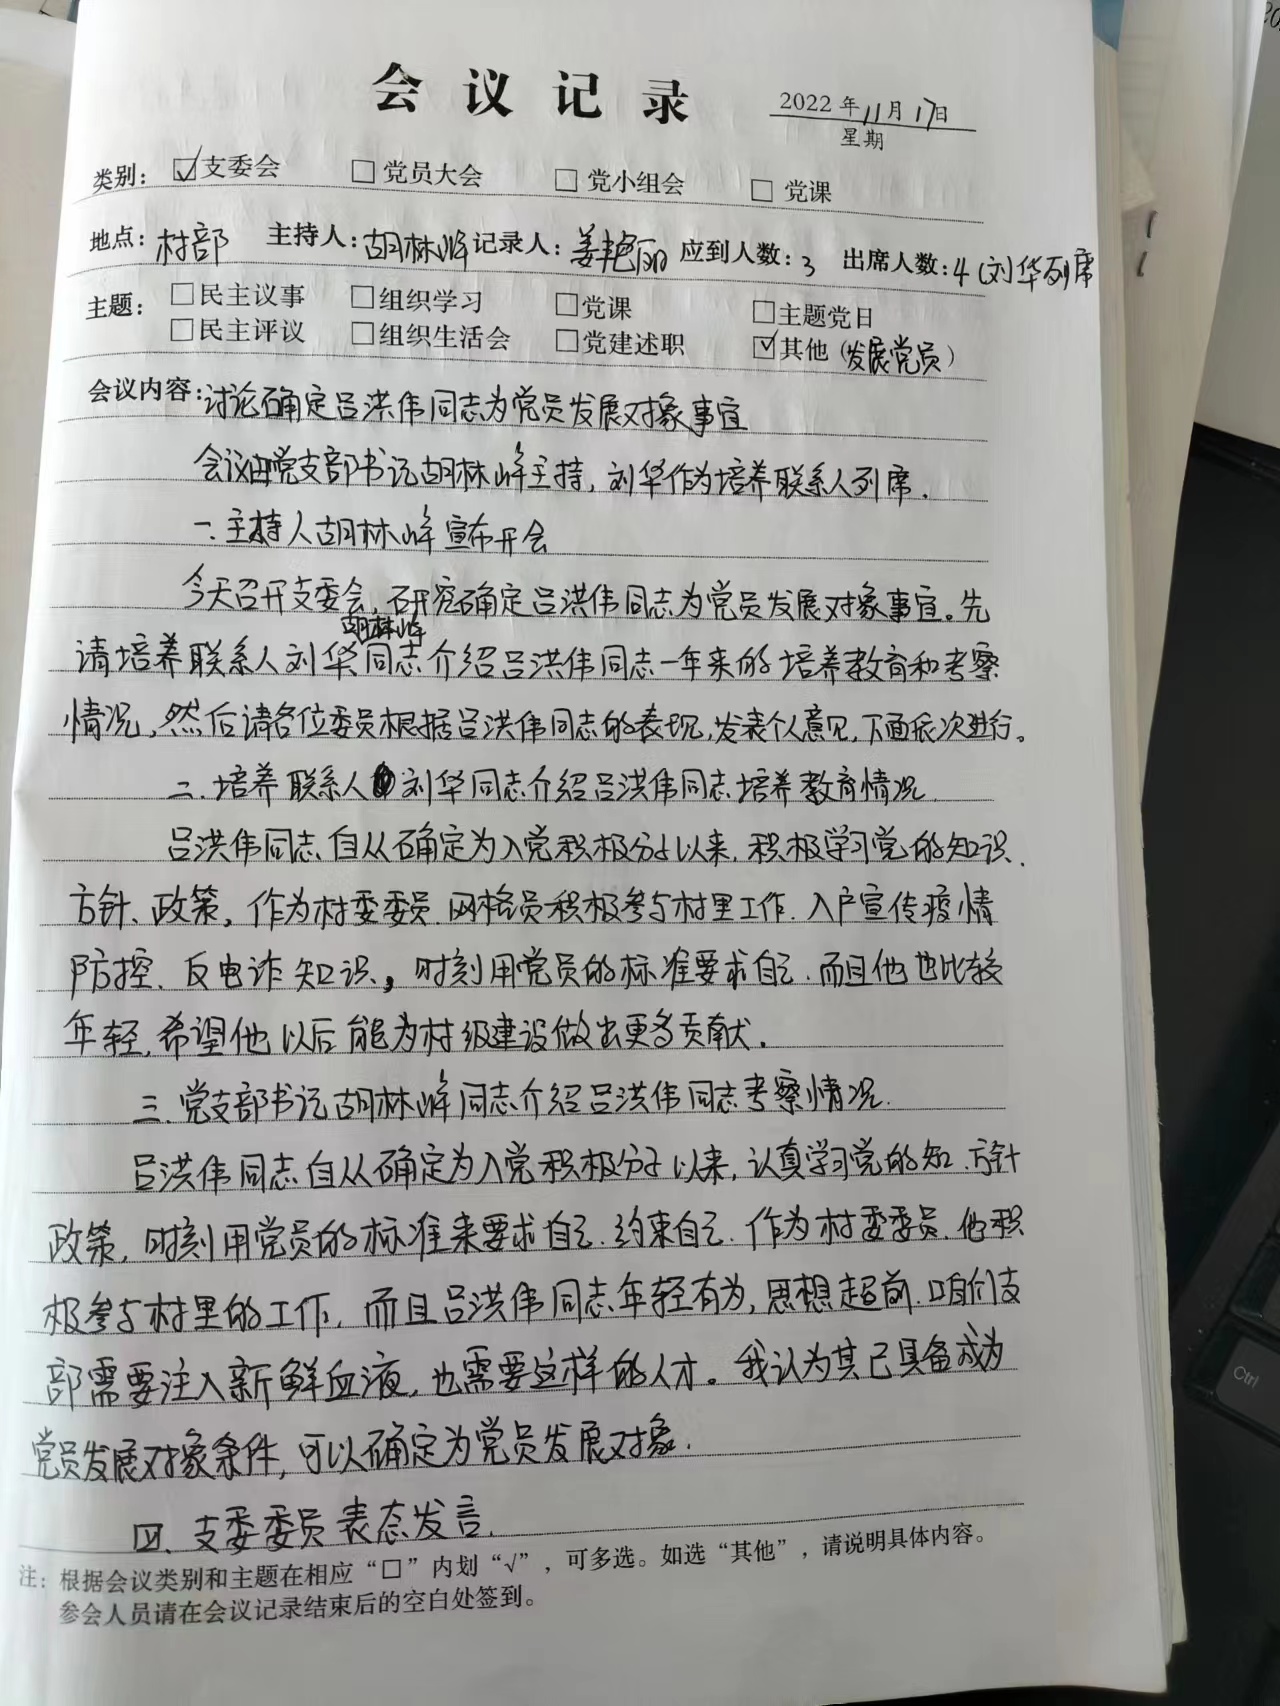 会议记录
2022年11月17日
星期
类别: ☑支委会 □党员大会 □党小组会 □党课
地点:村部 主持人:胡林峰 记录人:姜艳丽 应到人数:3 出席人数:4(刘华列席
主题: □民主议事 □组织学习 □党课 □主题党日
□民主评议 □组织生活会 □党建述职 ☑其他(发展党员)
会议内容:讨论确定吕洪伟同志为党员发展对象事宜
会议由党支部书记胡林峰主持,刘华作为培养联系人列席.
一.主持人胡林峰宣布开会
今天召开支委会,研究确定吕洪伟同志为党员发展对象事宜。先
胡林峰
请培养联系人刘华同志介绍吕洪伟同志一年来的培养教育和考察
情况,然后请各位委员根据吕洪伟同志的表现,发表个人意见,下面依次进行。
二.培养联系人刘华同志介绍吕洪伟同志培养教育情况.
吕洪伟同志自从确定为入党积极分子以来,积极学习党的知识、
方针、政策,作为村委委员.网格员积极参与村里工作.入户宣传疫情
防控、反电诈知识,时刻用党员的标准要求自己.而且他也比较
年轻,希望他以后能为村级建设做出更多贡献.
三.党支部书记胡林峰同志介绍吕洪伟同志考察情况.
吕洪伟同志自从确定为入党积极分子以来,认真学习党的知.方针
政策,时刻用党员的标准来要求自己.约束自己.作为村委委员.他积
极参与村里的工作,而且吕洪伟同志年轻有为,思想超前.咱们支
部需要注入新鲜血液,也需要这样的人才。我认为其已具备成为
党员发展对象条件,可以确定为党员发展对象.
四.支委委员表态发言.
注:根据会议类别和主题在相应“□”内划“√”,可多选。如选“其他”,请说明具体内容。
参会人员请在会议记录结束后的空白处签到。
Ctrl